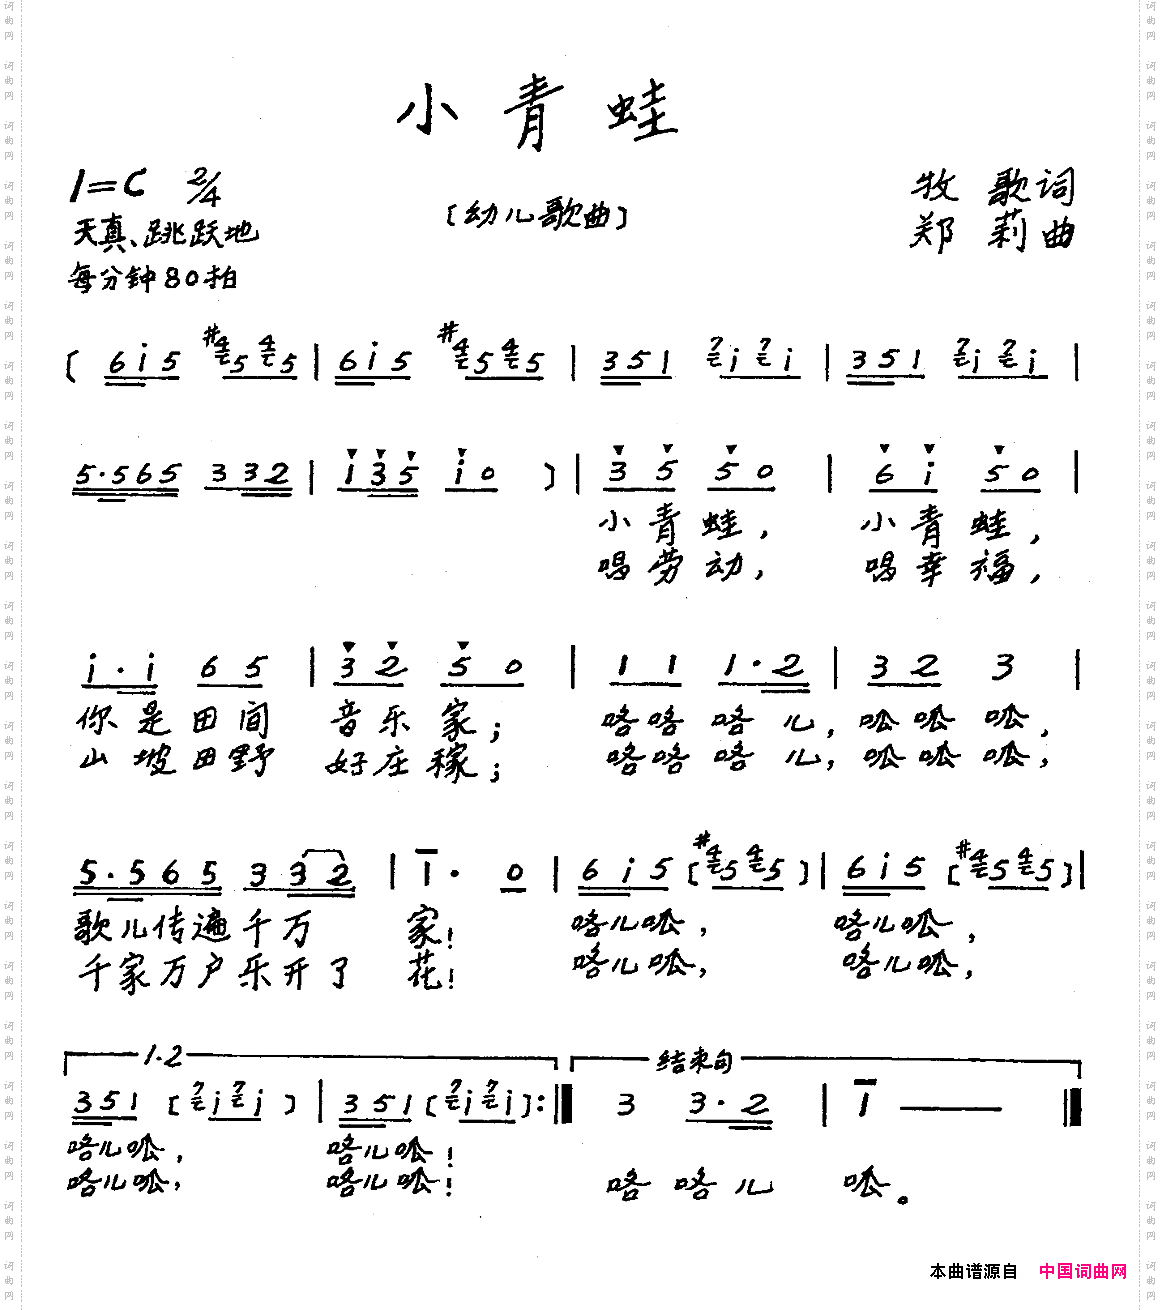 小青蛙
1=C 2/4
〔幼儿歌曲〕
牧歌词
天真、跳跃地
郑莉曲
每分钟80拍
〔 6 i 5 #4 5 4 5 | 6 i 5 #4 5 4 5 | 3 5 1 7 i 7 i | 3 5 1 7 i 7 i |
5·5 6 5 3 3 2 | i 3 5 i 0 〕 | 3 5 5 0 | 6 i 5 0 |
小青蛙， 小青蛙，
唱劳动， 唱幸福，
i · i 6 5 | 3 2 5 0 | 1 1 1·2 | 3 2 3 |
你是田间 音乐家； 咯咯咯儿，呱呱呱，
山坡田野 好庄稼； 咯咯咯儿，呱呱呱，
5·5 6 5 3 3 2 | 1· 0 | 6 i 5 〔#4 5 4 5〕 | 6 i 5 〔#4 5 4 5〕 |
歌儿传遍千万 家！ 咯儿呱， 咯儿呱，
千家万户乐开了 花！ 咯儿呱， 咯儿呱，
1.2 结束句
3 5 1 〔7 i 7 i〕 | 3 5 1 〔7 i 7 i〕 :‖ 3 3·2 | 1 — ‖
咯儿呱， 咯儿呱！
咯儿呱， 咯儿呱！ 咯咯儿 呱。
本曲谱源自 中国词曲网
词曲网